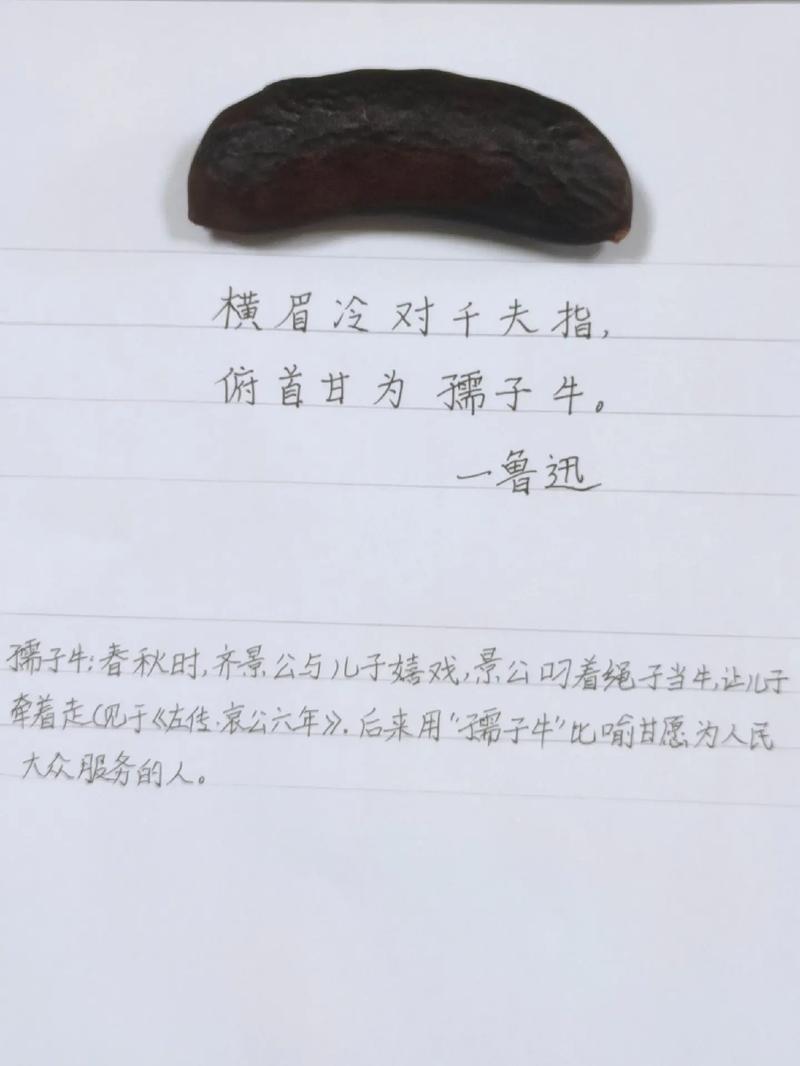 横眉冷对千夫指,
俯首甘为孺子牛。
—鲁迅
孺子牛:春秋时,齐景公与儿子嬉戏,景公叼着绳子当牛,让儿子
牵着走(见于《左传·哀公六年》.后来用“孺子牛”比喻甘愿为人民
大众服务的人。